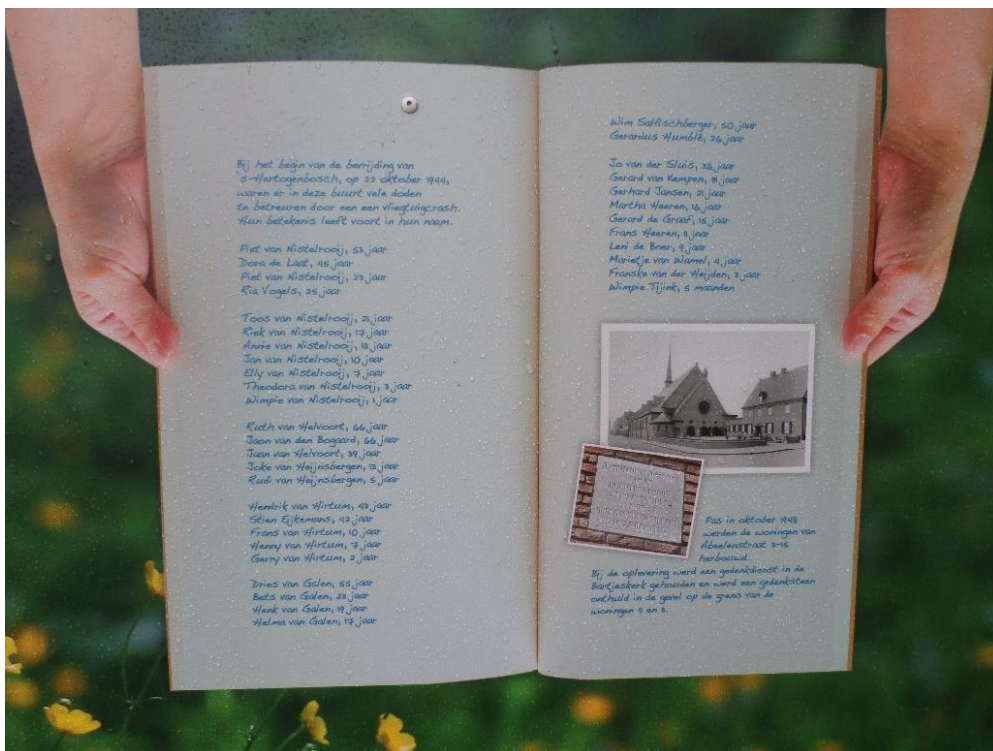 Bij het begin van de bevrijding van
's-Hertogenbosch, op 22 oktober 1944,
waren er in deze buurt vele doden
te betreuren door een een vliegtuigcrash.
Hun betekenis leeft voort in hun naam.
Piet van Nistelrooij, 53 jaar
Dora de Laat, 45 jaar
Piet van Nistelrooij, 22 jaar
Ria Vogels, 25 jaar
Toos van Nistelrooij, 21 jaar
Riek van Nistelrooij, 17 jaar
Annie van Nistelrooij, 13 jaar
Jan van Nistelrooij, 10 jaar
Elly van Nistelrooij, 7 jaar
Theodora van Nistelrooij, 3 jaar
Wimpie van Nistelrooij, 1 jaar
Ruth van Helvoort, 66 jaar
Jaan van den Bogaard, 66 jaar
Jaan van Helvoort, 39 jaar
Joke van Heijnsbergen, 13 jaar
Rudi van Heijnsbergen, 5 jaar
Hendrik van Hirtum, 43 jaar
Stien Eijkemans, 42 jaar
Frans van Hirtum, 10 jaar
Henny van Hirtum, 7 jaar
Gerry van Hirtum, 2 jaar
Dries van Galen, 55 jaar
Bets van Galen, 22 jaar
Henk van Galen, 19 jaar
Helma van Galen, 17 jaar
Wim Salfischberger, 50 jaar
Gerardus Humblé, 26 jaar
Jo van der Sluis, jaar
Gerard van Kempen, jaar
Gerhard Jansen, 21 jaar
Martha Heeren, 16 jaar
Gerard de Graaf, 15 jaar
Frans Heeren, jaar
Leni de Boer, 9 jaar
Marietje van Wamel, 4 jaar
Franske van der Heijden, jaar
Wimpie Tijink, 5 maanden
Pas in oktober 1948
werden de woningen van
Abeelenstraat 3-15
herbouwd.
Bij de oplevering werd een gedenkdienst in de
Bartjeskerk gehouden en werd een gedenksteen
onthuld in de gevel op de grens van de
woningen 9 en